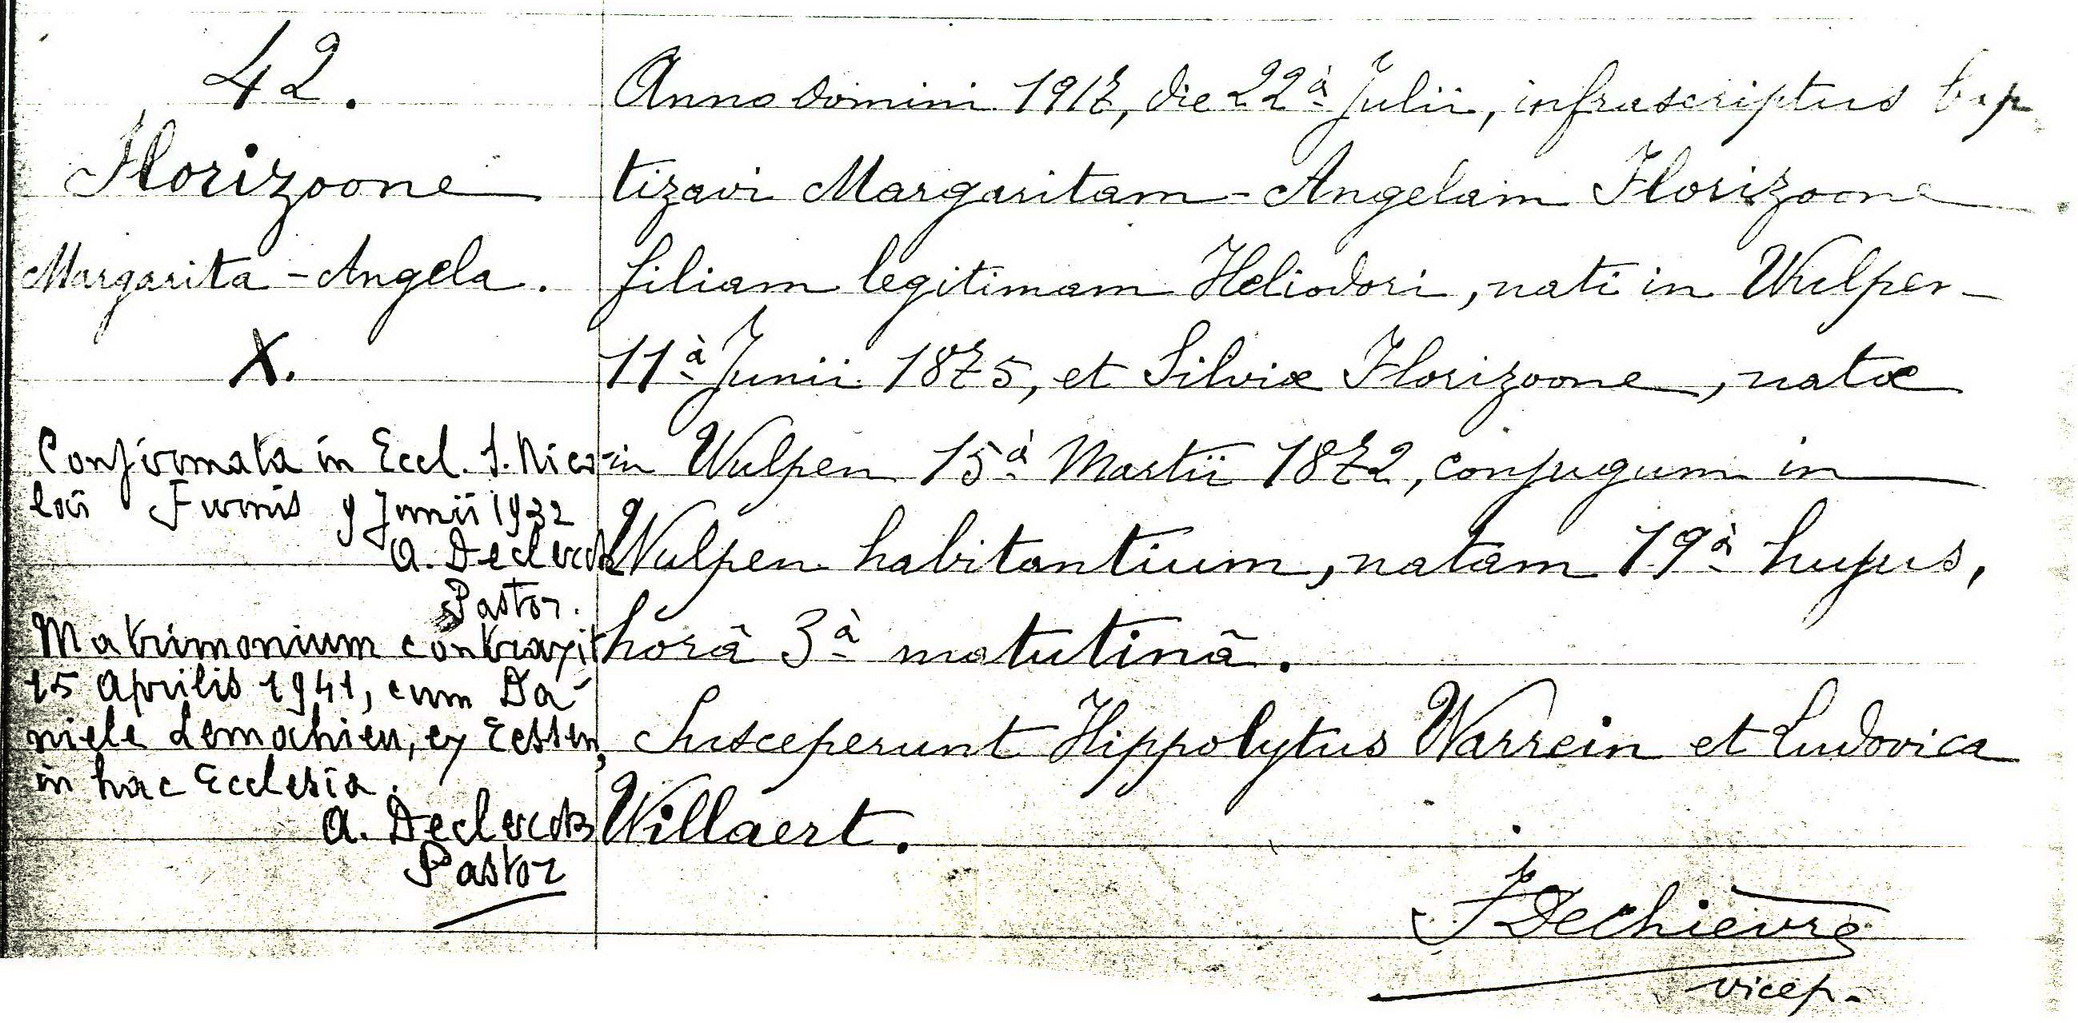 42.
Florizoone
Margarita-Angela.
X.
Confirmata in Eccl. S. Nico-
lai Furnis 9 Junii 1932
A. Declerck
Pastor.
Matrimonium contraxit
15 Aprilis 1941, cum Da-
niele Lemahieu, ex Eessen,
in hac Ecclesia.
A. Declerck
Pastor
Anno Domini 1917, die 22â Julii, infrascriptus bap
tizavi Margaritam-Angelam Florizoone
filiam legitimam Heliodori, nati in Wulpen
11â Junii 1875, et Silviæ Florizoone, natæ
in Wulpen 15â Martii 1872, conjugum in
Wulpen habitantium, natam 19â hujus,
horâ 3â matutinâ.
Susceperunt Hippolytus Warrein et Ludovica
Willaert.
J Dechièvre
vicep.